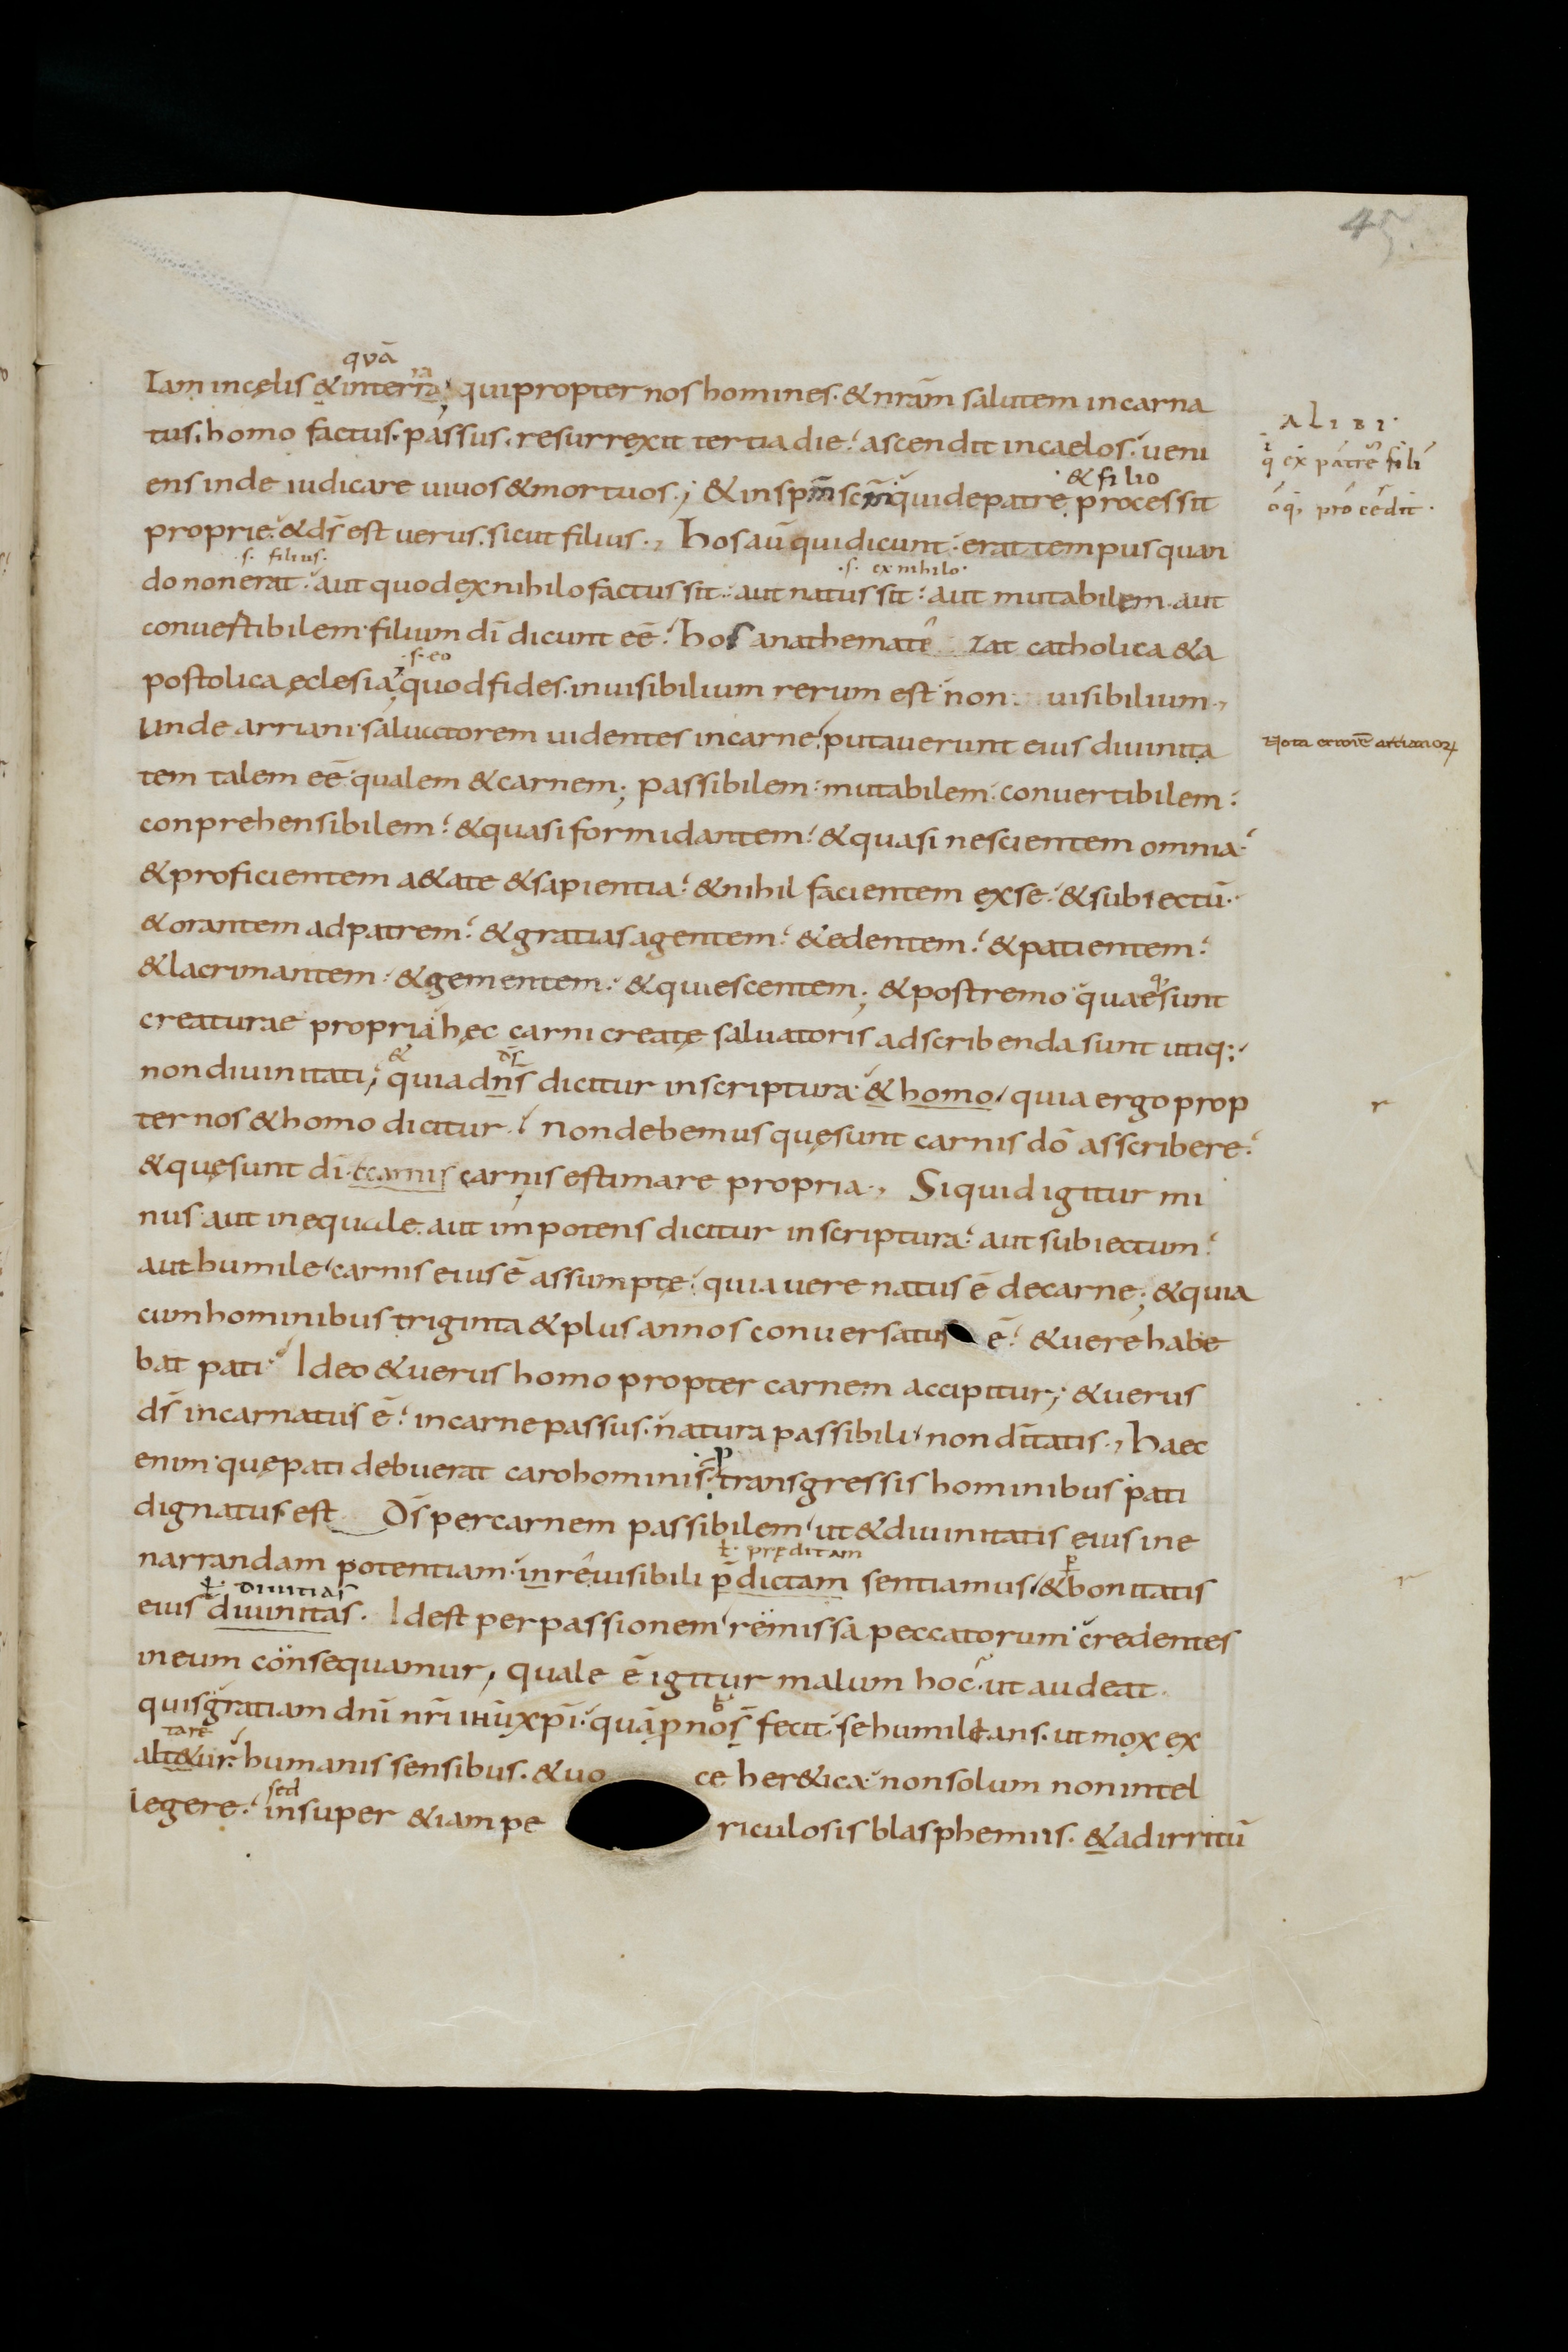 45.
quā
Iam in cęlis & in terra; qui propter nos homines. & nr̄am salutem incarna
tus. homo factus. passus. resurrexit tertia die. ascendit in caelos. ueni
& filio
ens inde iudicare uiuos & mortuos; & in sp̄m sc̄m qui de patre processit
proprie. & d̄s est uerus. sicut filius., Hos aū qui dicunt. erat tempus quan
.s. filius. .s. ex nihilo.
do non erat. aut quod ex nihilo factus sit. aut natus sit. aut mutabilem. aut
conuertibilem filium dī dicunt eē. hos anathematę zat catholica & a
.s. eo
postolica ęclesia, quod fides inuisibilium rerum est non uisibilium.,
Unde arriani saluatorem uidentes in carne. putauerunt eius diuinita
tem talem eē qualem & carnem; passibilem. mutabilem. conuertibilem.
conprehensibilem. & quasi formidantem. & quasi nescientem omnia.
& proficientem a&ate & sapientia. & nihil facientem ex se. & subiectū.
& orantem ad patrem. & gratias agentem. & edentem. & patientem.
& lacrimantem. & gementem. & quiescentem; & postremo quae sunt
creaturae propria hęc carni creatę saluatoris adscribenda sunt utiq;
& d̄s
non diuinitati; quia dn̄s dicitur in scriptura. & homo. quia ergo prop
ter nos & homo dicitur. non debemus quę sunt carnis dō asscribere.
& quę sunt dī. carnis estimare propria., Si quid igitur mi
nus aut inequale. aut impotens dicitur in scriptura. aut subiectum.
aut humile. carnis eius ē assumptę. quia uere natus ē de carne; & quia
cum hominibus triginta & plus annos conuersatus ē. & uere habe
bat pati. Ideo & uerus homo propter carnem accipitur; & uerus
d̄s incarnatus ē. in carne passus. natura passibili. non dītatis., Haec
enim quę pati debuerat caro hominis. transgressis hominibus pati
dignatus est D̄s per carnem passibilem. ut & diuinitatis eius ine
ł. pręditam
narrandam potentiam in rē uisibili p̄dictam sentiamus. & bonitatis
ł. diuitias
eius diuinitas. Idest per passionem remissa peccatorum credentes
in eum consequamur, quale ē igitur malum hoc. ut audeat.
quis gratiam dn̄i nr̄i ihū xp̄i. quā p nos fecit. se humilitans. ut mox ex
tare
alt&ur. humanis sensibus. & uo ce her&ica non solum non intel
sed
legere. insuper &iam pe riculosis blasphemiis. & ad irritū
ALIBI.
q̄ ex patre filī
ōq, procedit.
Nota errorē arrianoꝝ